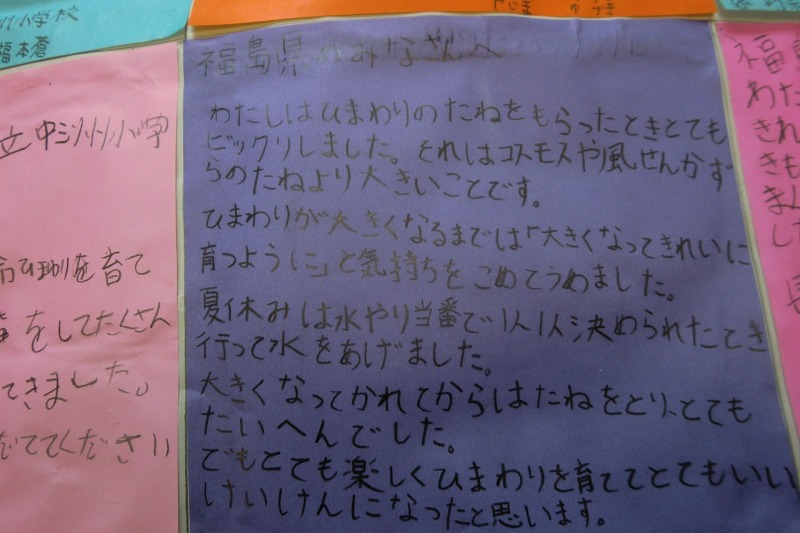 小学校
福本蒼
立中洲小学
ひまわりを育て
をしてたくさん
てきました。
だててください
福島県のみなさんへ
わたしはひまわりのたねをもらったときとても
ビックリしました。それはコスモスや風せんかず
らのたねより大きいことです。
ひまわりが大きくなるまでは「大きくなってきれいに
育つように」と気持ちをこめてうめました。
夏休みは水やり当番で1人1人決められたとき
行って水をあげました。
大きくなってかれてからはたねをとり、とても
たいへんでした。
でもとても楽しくひまわりを育ててとてもいい
けいけんになったと思います。
福
わた
きれ
きも
まん
し
長